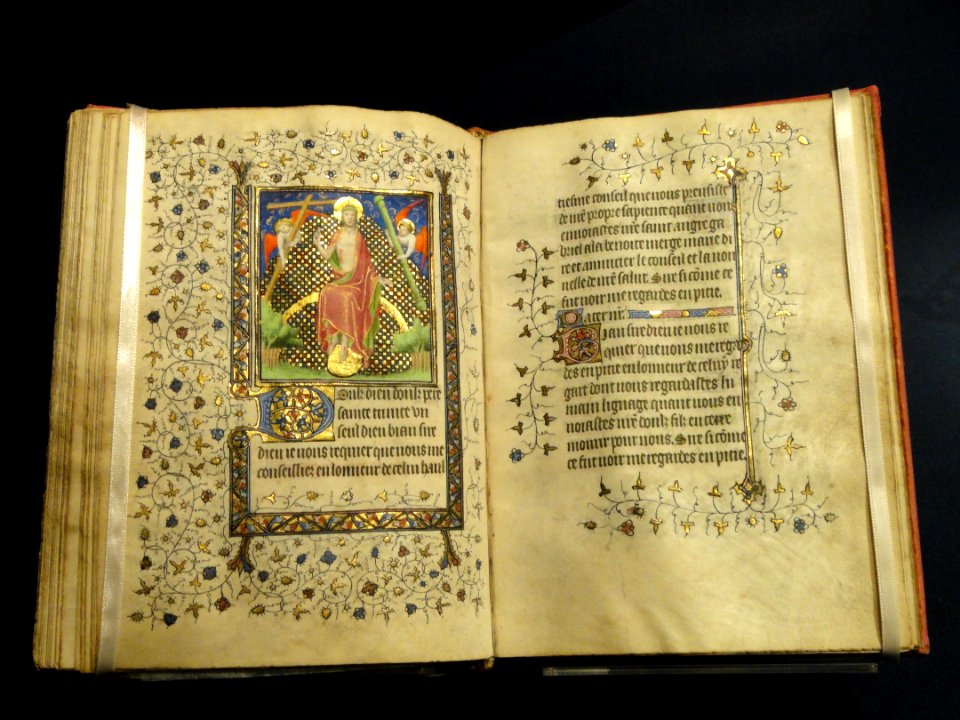 Doulz dieu doulz pere
sainte trinite un
seul dieu biau sire
dieu ie vous requier que vous me
conseillies en lonneur de celui haul
tiesme conseil que vous preussiste
de vre propre sapience quant vous
envoiastes vre saint angre ga
briel a la benoite vierge marie di
re et annuncier le conseil et la nou
uelle de nre salut. Sire si come ce
fut voir me regardes en pitie.
Pater nr.
Biau sire dieu ie vous re
quier que vous me regar
des en pitie en lonneur de celuy re
gart dont vous regardastes lu
main lignage quant vous en
voiastes vre doulz filz en terre
mourir pour nous. Sire si come
ce fut voir me regardes en pitie.